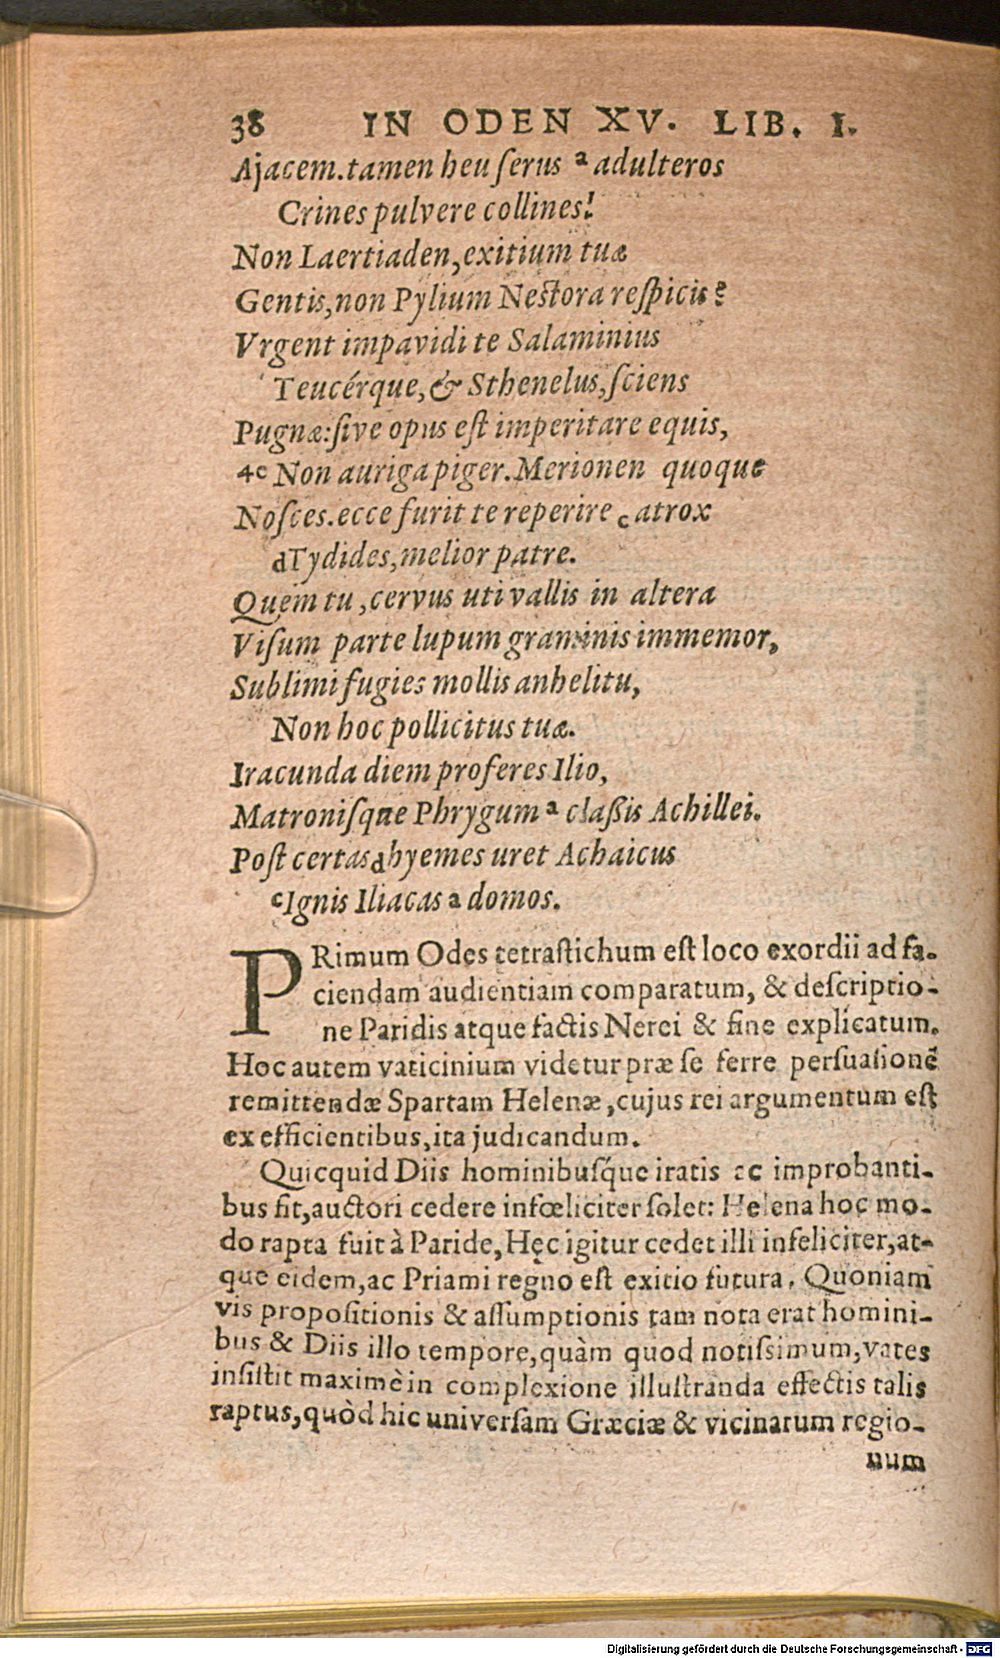 38 IN ODEN XV. LIB. I.
Ajacem. tamen heu ſerus a adulteros
Crines pulvere collines!
Non Laertiaden, exitium tuæ
Gentis, non Pylium Neſtora reſpicis?
Vrgent impavidi te Salaminius
Teucérque, & Sthenelus, ſciens
Pugnæ: ſive opus eſt imperitare equis,
4c Non auriga piger. Merionen quoque
Noſces. ecce furit te reperire c atrox
d Tydides, melior patre.
Quem tu, cervus uti vallis in altera
Viſum parte lupum graminis immemor,
Sublimi fugies mollis anhelitu,
Non hoc pollicitus tuæ.
Iracunda diem proferes Ilio,
Matroniſque Phrygum a claßis Achillei.
Poſt certas d hyemes uret Achaicus
c Ignis Iliacas a domos.
PRimum Odes tetraſtichum eſt loco exordii ad fa-
ciendam audientiam comparatum, & deſcriptio-
ne Paridis atque factis Nerei & fine explicatum.
Hoc autem vaticinium videtur præ ſe ferre perſuaſionē
remittendæ Spartam Helenæ, cujus rei argumentum eſt
ex efficientibus, ita judicandum.
Quicquid Diis hominibuſque iratis ac improbanti-
bus fit, auctori cedere infœliciter ſolet: Helena hoc mo-
do rapta fuit à Paride, Hęc igitur cedet illi infeliciter, at-
que eidem, ac Priami regno eſt exitio futura. Quoniam
vis propoſitionis & aſſumptionis tam nota erat homini-
bus & Diis illo tempore, quàm quod notiſsimum, vates
inſiſtit maximè in complexione illuſtranda effectis talis
raptus, quòd hic univerſam Græciæ & vicinarum regio-
num
Digitalisierung gefördert durch die Deutsche Forschungsgemeinschaft - DFG